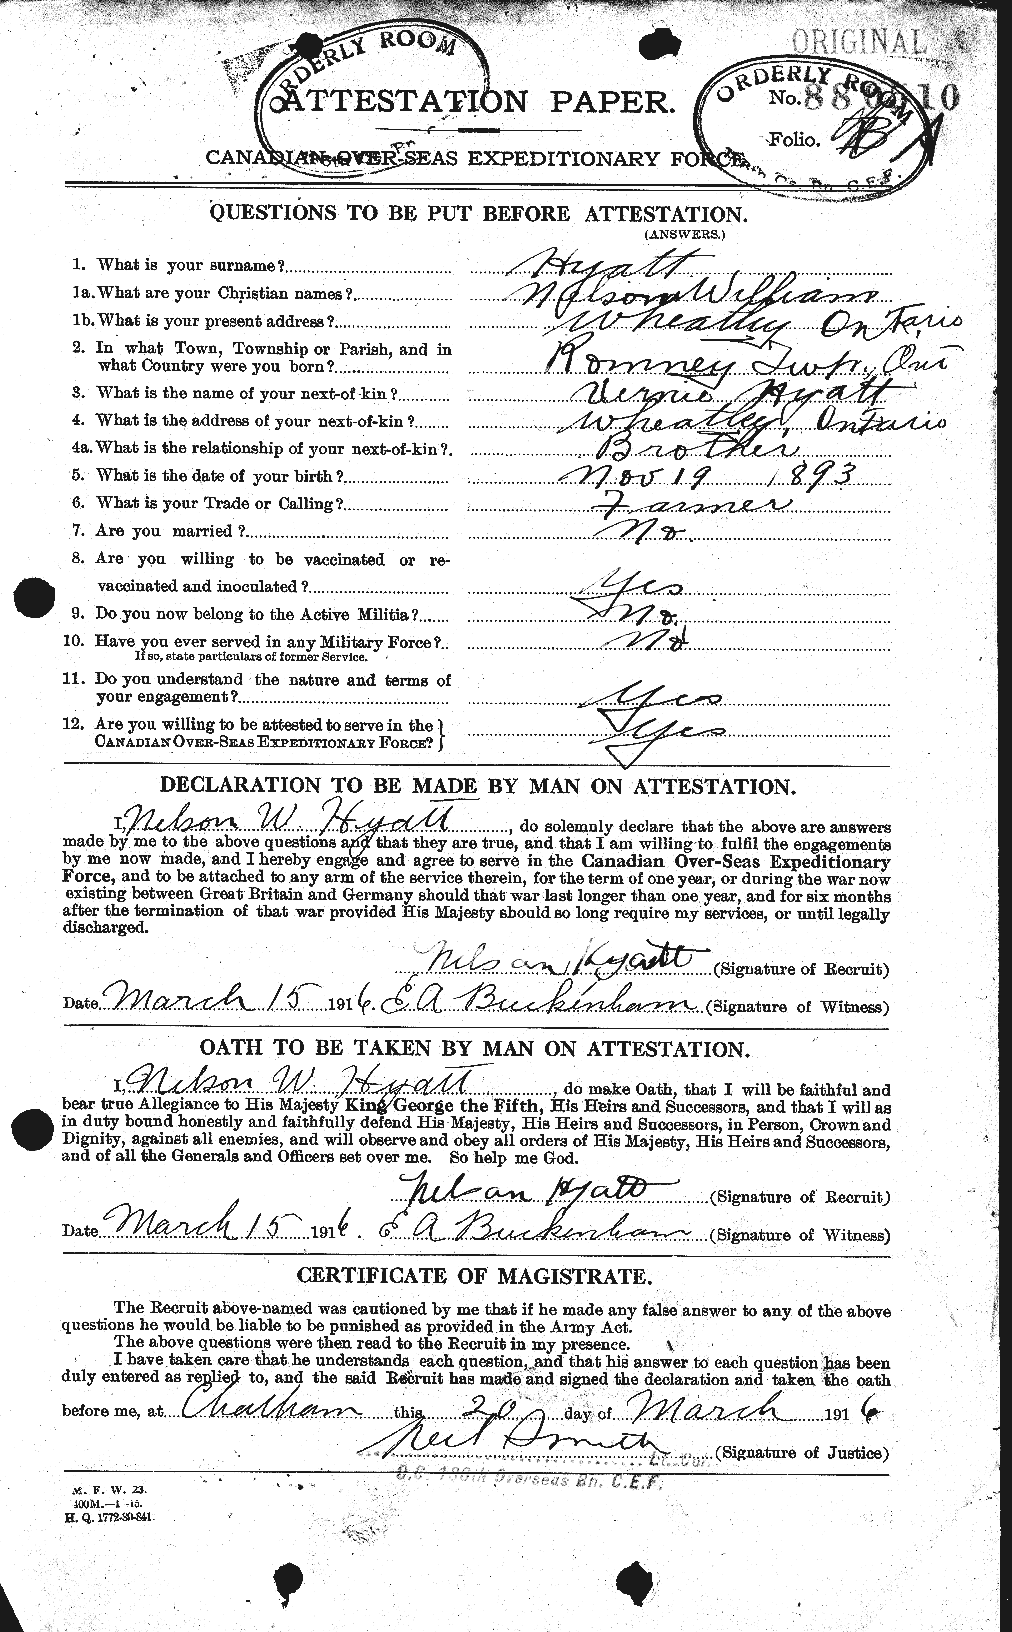 ORIGINAL
ORDERLY ROOM
ORDERLY ROOM
ATTESTATION PAPER.
No. 88 10
Folio.
CANADIAN OVER-SEAS EXPEDITIONARY FORCE.
Bn. C.E.F.
QUESTIONS TO BE PUT BEFORE ATTESTATION.
(ANSWERS.)
1. What is your surname? Hyatt
1a. What are your Christian names? Nelson William
1b. What is your present address? Wheatley Ontario
2. In what Town, Township or Parish, and in
what Country were you born? Romney Twp. Ont
3. What is the name of your next-of-kin? Vernie Hyatt
4. What is the address of your next-of-kin? Wheatley, Ontario
4a. What is the relationship of your next-of-kin? Brother
5. What is the date of your birth? Nov 19 1893
6. What is your Trade or Calling? Farmer
7. Are you married? No.
8. Are you willing to be vaccinated or re-
vaccinated and inoculated? Yes
9. Do you now belong to the Active Militia? No.
10. Have you ever served in any Military Force? No
If so, state particulars of former Service.
11. Do you understand the nature and terms of
your engagement? Yes
12. Are you willing to be attested to serve in the
CANADIAN OVER-SEAS EXPEDITIONARY FORCE? Yes
DECLARATION TO BE MADE BY MAN ON ATTESTATION.
I, Nelson W. Hyatt, do solemnly declare that the above are answers
made by me to the above questions and that they are true, and that I am willing to fulfil the engagements
by me now made, and I hereby engage and agree to serve in the Canadian Over-Seas Expeditionary
Force, and to be attached to any arm of the service therein, for the term of one year, or during the war now
existing between Great Britain and Germany should that war last longer than one year, and for six months
after the termination of that war provided His Majesty should so long require my services, or until legally
discharged.
Nelson Hyatt (Signature of Recruit)
Date March 15 1916. E A Buckenham (Signature of Witness)
OATH TO BE TAKEN BY MAN ON ATTESTATION.
I, Nelson W. Hyatt, do make Oath, that I will be faithful and
bear true Allegiance to His Majesty King George the Fifth, His Heirs and Successors, and that I will as
in duty bound honestly and faithfully defend His Majesty, His Heirs and Successors, in Person, Crown and
Dignity, against all enemies, and will observe and obey all orders of His Majesty, His Heirs and Successors,
and of all the Generals and Officers set over me. So help me God.
Nelson Hyatt (Signature of Recruit)
Date March 15 1916. E A Buckenham (Signature of Witness)
CERTIFICATE OF MAGISTRATE.
The Recruit above-named was cautioned by me that if he made any false answer to any of the above
questions he would be liable to be punished as provided in the Army Act.
The above questions were then read to the Recruit in my presence.
I have taken care that he understands each question, and that his answer to each question has been
duly entered as replied to, and the said Recruit has made and signed the declaration and taken the oath
before me, at Chatham this 20 day of March 1916
Neil Smith (Signature of Justice)
Lt. Col.
O.C. 186th Overseas Bn. C.E.F.
M. F. W. 23.
400M.—1-15.
H. Q. 1772-39-841.